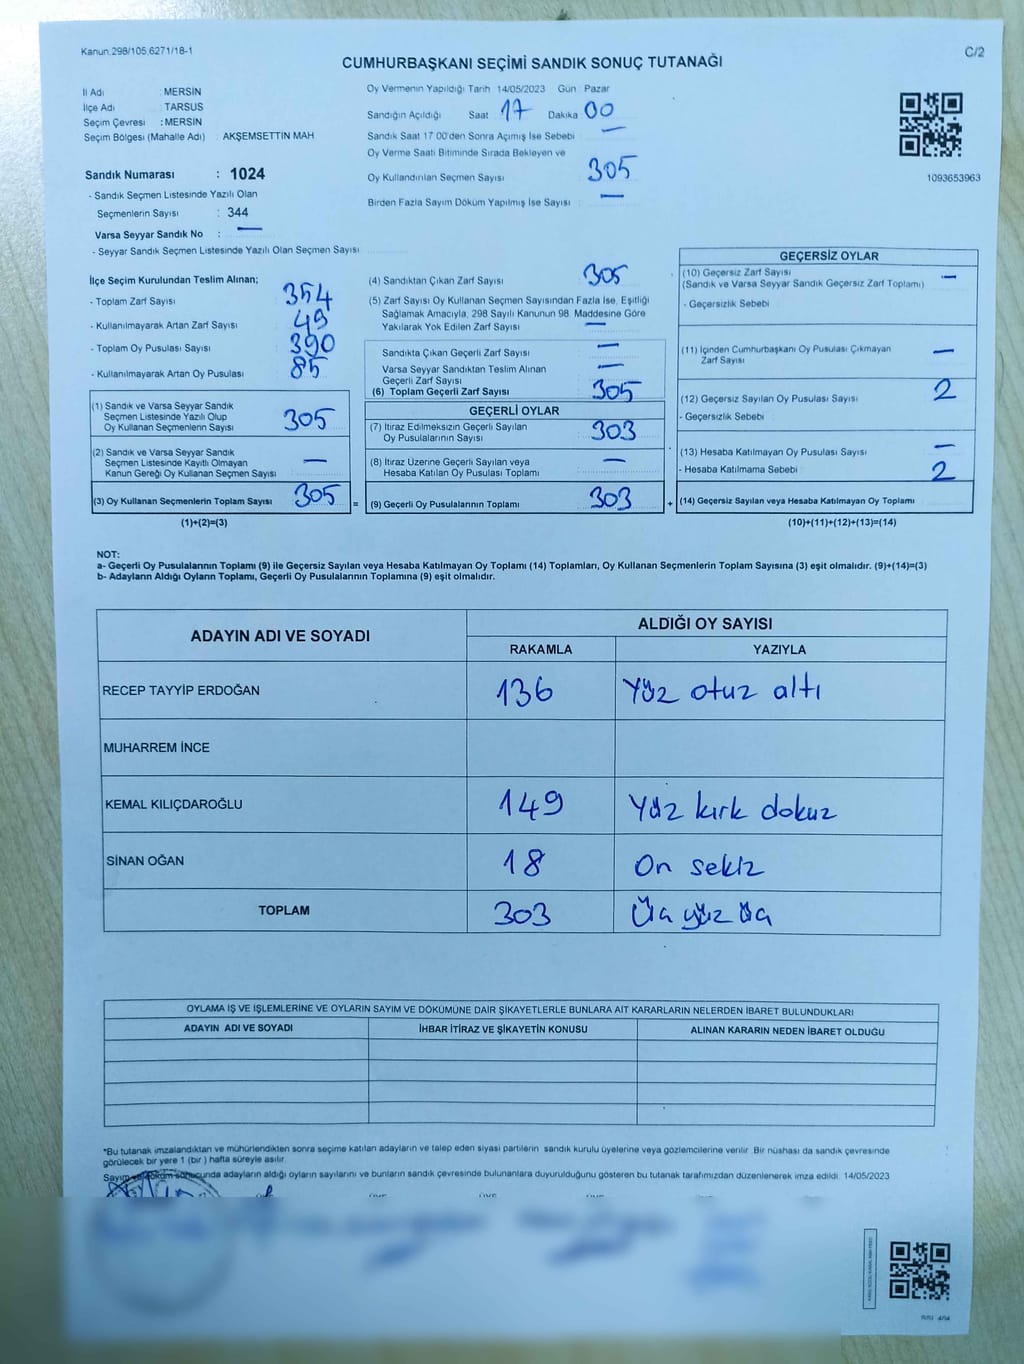 Kanun.298/105,6271/18-1
C/2
CUMHURBAŞKANI SEÇİMİ SANDIK SONUÇ TUTANAĞI
İl Adı : MERSİN
İlçe Adı : TARSUS
Seçim Çevresi : MERSİN
Seçim Bölgesi (Mahalle Adı) : AKŞEMSETTİN MAH.
Sandık Numarası : 1024
- Sandık Seçmen Listesinde Yazılı Olan
Seçmenlerin Sayısı : 344
Varsa Seyyar Sandık No : —
- Seyyar Sandık Seçmen Listesinde Yazılı Olan Seçmen Sayısı
Oy Vermenin Yapıldığı Tarih 14/05/2023 Gün Pazar
Sandığın Açıldığı Saat 17 Dakika 00
Sandık Saat 17:00'den Sonra Açımış İse Sebebi —
Oy Verme Saati Bitiminde Sırada Bekleyen ve
Oy Kullandırılan Seçmen Sayısı 305
Birden Fazla Sayım Döküm Yapılmış İse Sayısı : —
1093653963
İlçe Seçim Kurulundan Teslim Alınan;
- Toplam Zarf Sayısı 354
- Kullanılmayarak Artan Zarf Sayısı 49
- Toplam Oy Pusulası Sayısı 390
- Kullanılmayarak Artan Oy Pusulası 85
(1) Sandık ve Varsa Seyyar Sandık
Seçmen Listesinde Yazılı Olup
Oy Kullanan Seçmenlerin Sayısı 305
(2) Sandık ve Varsa Seyyar Sandık
Seçmen Listesinde Kayıtlı Olmayan
Kanun Gereği Oy Kullanan Seçmen Sayısı —
(3) Oy Kullanan Seçmenlerin Toplam Sayısı 305 =
(1)+(2)=(3)
(4) Sandıktan Çıkan Zarf Sayısı 305
(5) Zarf Sayısı Oy Kullanan Seçmen Sayısından Fazla İse, Eşitliği
Sağlamak Amacıyla, 298 Sayılı Kanunun 98. Maddesine Göre
Yakılarak Yok Edilen Zarf Sayısı —
Sandıkta Çıkan Geçerli Zarf Sayısı —
Varsa Seyyar Sandıktan Teslim Alınan
Geçerli Zarf Sayısı —
(6) Toplam Geçerli Zarf Sayısı 305
GEÇERLİ OYLAR
(7) İtiraz Edilmeksizin Geçerli Sayılan
Oy Pusulalarının Sayısı 303
(8) İtiraz Üzerine Geçerli Sayılan veya
Hesaba Katılan Oy Pusulaları Toplamı —
(9) Geçerli Oy Pusulalarının Toplamı 303 +
GEÇERSİZ OYLAR
(10) Geçersiz Zarf Sayısı —
(Sandık ve Varsa Seyyar Sandık Geçersiz Zarf Toplamı)
- Geçersizlik Sebebi
(11) İçinden Cumhurbaşkanı Oy Pusulası Çıkmayan
Zarf Sayısı —
(12) Geçersiz Sayılan Oy Pusulası Sayısı 2
- Geçersizlik Sebebi
(13) Hesaba Katılmayan Oy Pusulası Sayısı —
- Hesaba Katılmama Sebebi
(14) Geçersiz Sayılan veya Hesaba Katılmayan Oy Toplamı 2
(10)+(11)+(12)+(13)=(14)
NOT:
a- Geçerli Oy Pusulalarının Toplamı (9) ile Geçersiz Sayılan veya Hesaba Katılmayan Oy Toplamı (14) Toplamları, Oy Kullanan Seçmenlerin Toplam Sayısına (3) eşit olmalıdır. (9)+(14)=(3)
b- Adayların Aldığı Oyların Toplamı, Geçerli Oy Pusulalarının Toplamına (9) eşit olmalıdır.
ADAYIN ADI VE SOYADI
ALDIĞI OY SAYISI
RAKAMLA YAZIYLA
RECEP TAYYİP ERDOĞAN 136 Yüz otuz altı
MUHARREM İNCE
KEMAL KILIÇDAROĞLU 149 Yüz kırk dokuz
SİNAN OĞAN 18 On sekiz
TOPLAM 303 Üç yüz üç
OYLAMA İŞ VE İŞLEMLERİNE VE OYLARIN SAYIM VE DÖKÜMÜNE DAİR ŞİKAYETLERLE BUNLARA AİT KARARLARIN NELERDEN İBARET BULUNDUKLARI
ADAYIN ADI VE SOYADI İHBAR İTİRAZ VE ŞİKAYETİN KONUSU ALINAN KARARIN NEDEN İBARET OLDUĞU
*Bu tutanak imzalandıktan ve mühürlendikten sonra seçime katılan adayların ve talep eden siyasi partilerin sandık kurulu üyelerine veya gözlemcilerine verilir. Bir nüshası da sandık çevresinde
görülecek bir yere 1 (bir ) hafta süreyle asılır.
Sayım ve döküm sonucunda adayların aldığı oyların sayılarını ve bunların sandık çevresinde bulunanlara duyurulduğunu gösteren bu tutanak tarafımızdan düzenlenerek imza edildi. 14/05/2023